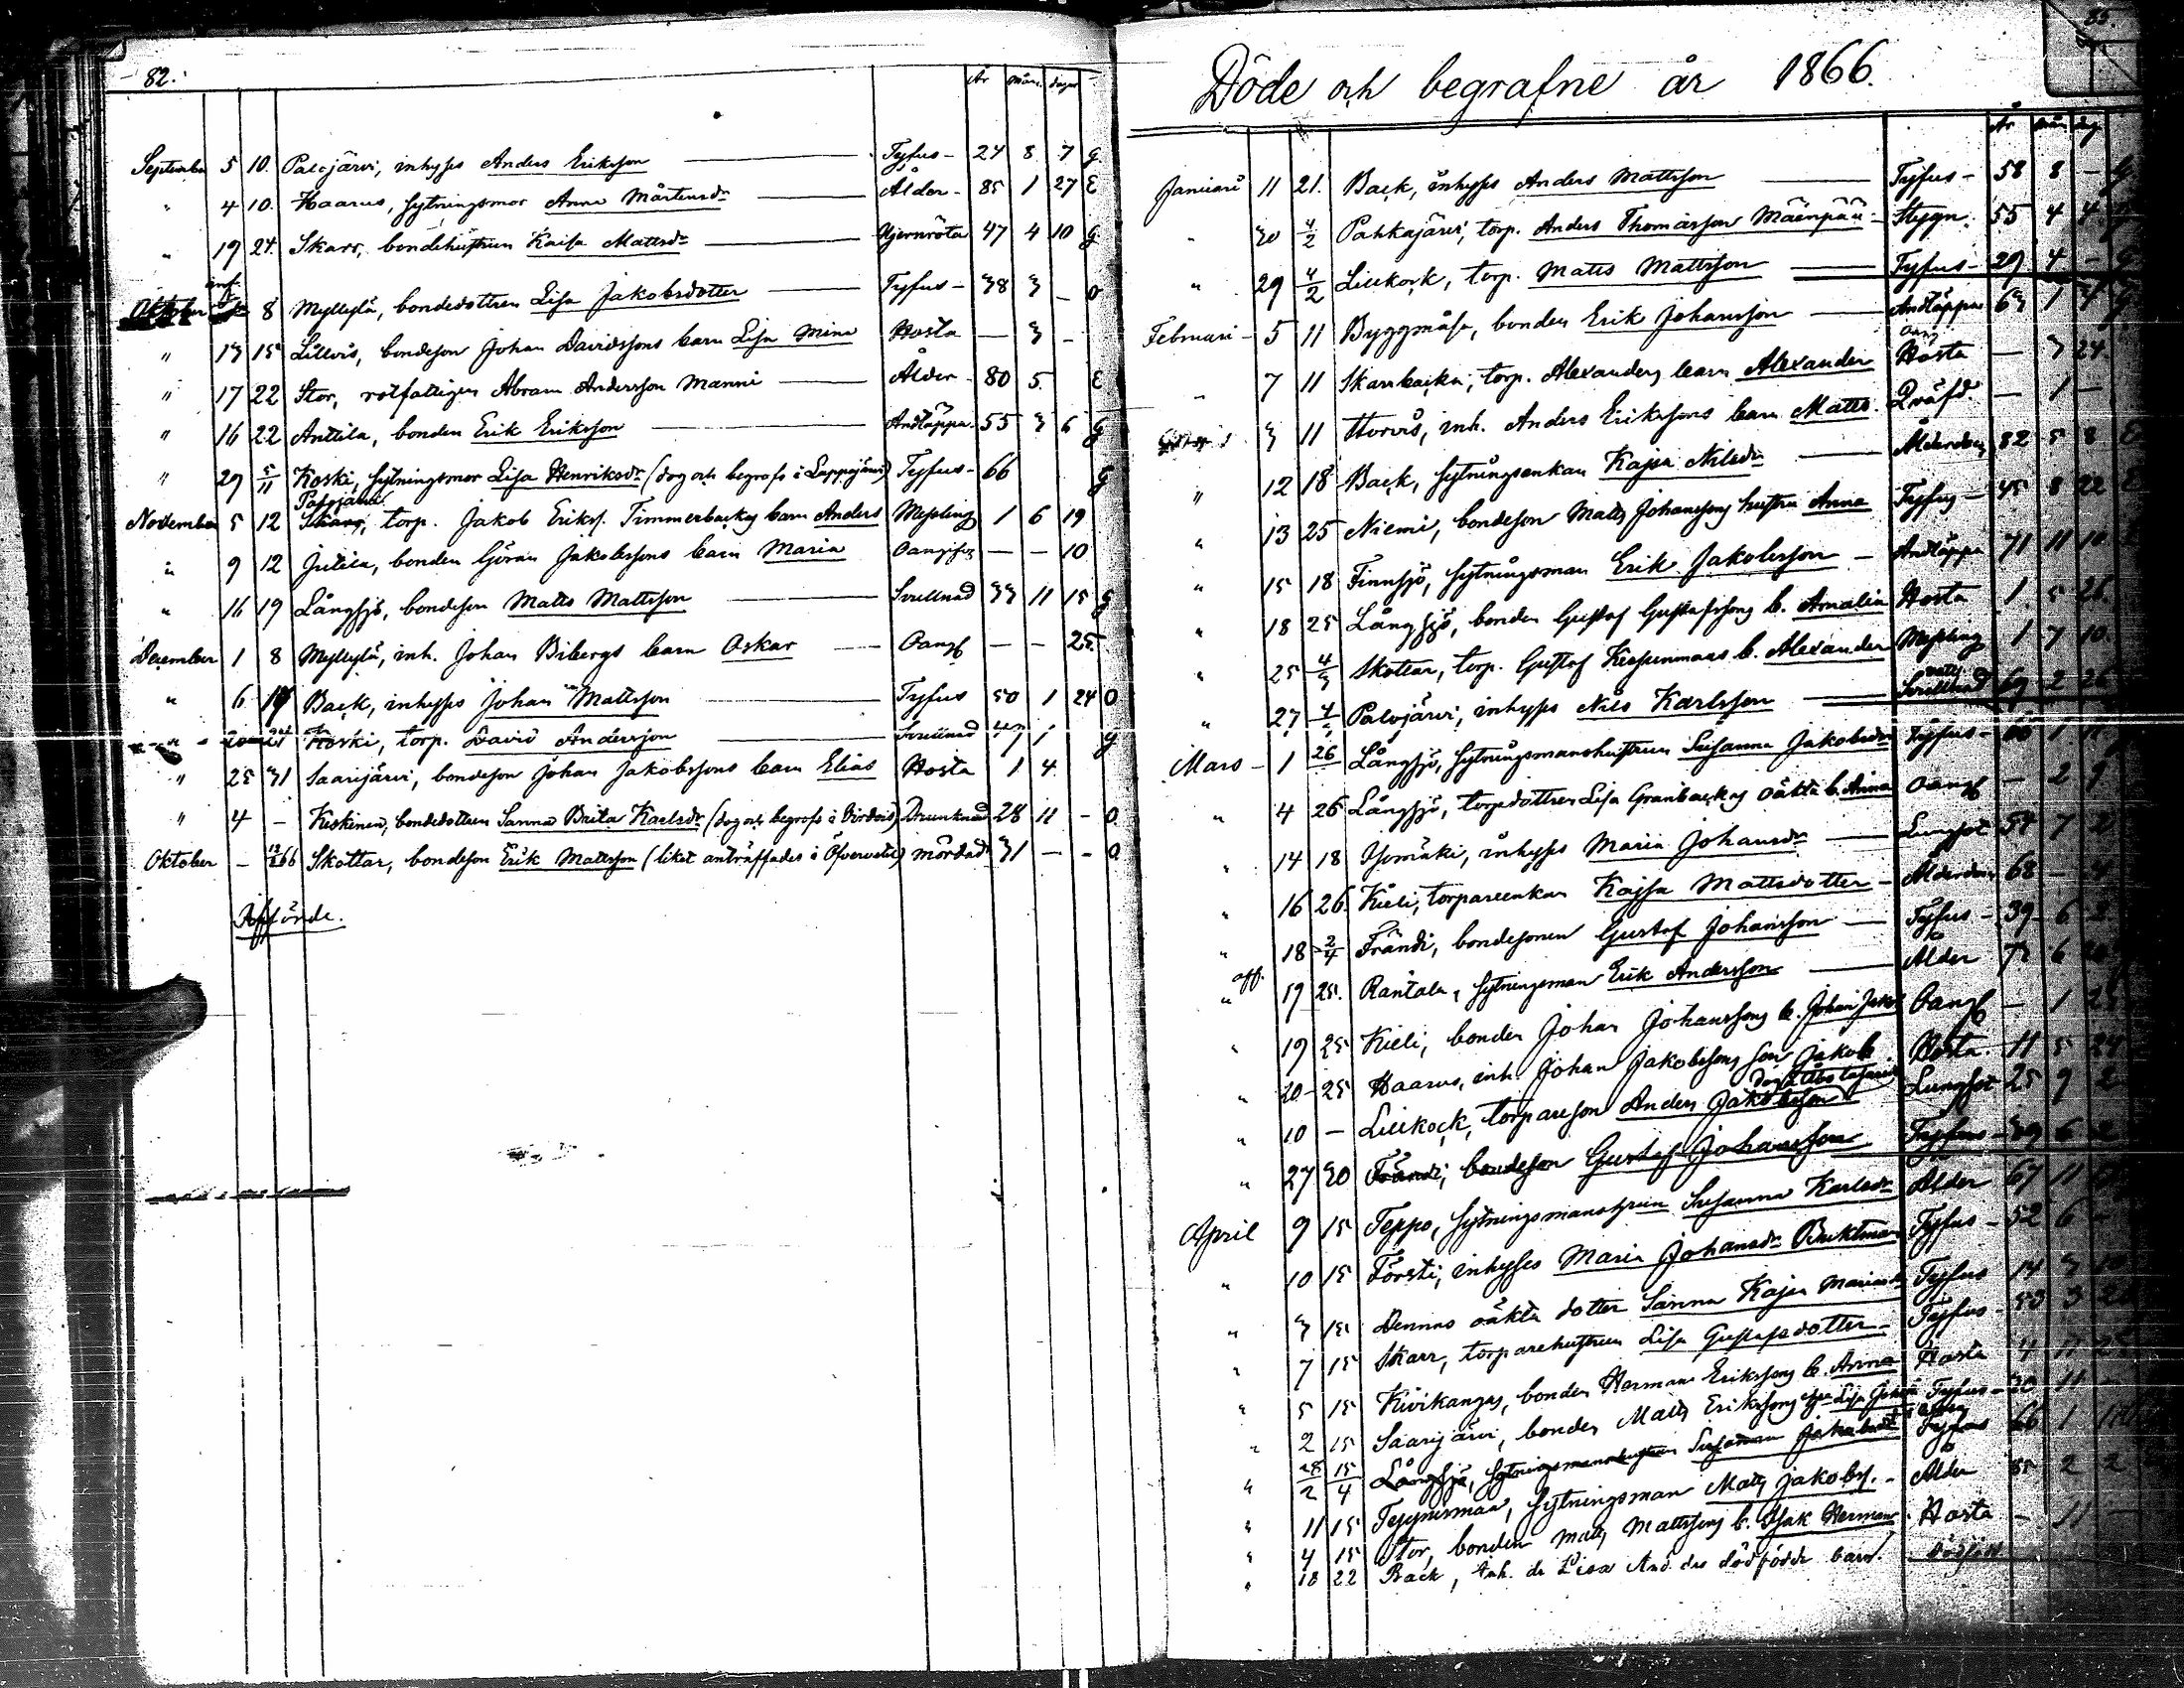 82.
År mån. dagar
September 5 10. Palojärvi, inhyses Anders Eriksson Tyfus 24 8 7 g
" 4 10. Haarus, sytningsmor Anna Mårtensdr Ålder 85 1 27 E
" 19 24. Skarr, bondehustrun Kaisa Mattsdr 47 4 10 g
Oktober 8 Myllylä, bondedottren Lisa Jakobsdotter Tyfus 38 3 - o
" 13 15 Lillvis, bondeson Johan Davidssons barn Lisa Mina Hosta - 3 -
" 17 22 Stor, rotfattigen Abram Andersson Manni Ålder 80 5 E
" 16 22 Anttila, bonden Erik Eriksson Andtäppa 55 3 6 g
" 29 5/11 Koski, sytningsmor Lisa Henriksdr (dog och begrofs i Lappajärvi) Tyfus 66 g
Palojärvi
November 5 12 Skarr, torp. Jakob Eriks. Timmerbackas barn Anders Messling 1 6 19
" 9 12 Jutila, bonden Göran Jakobssons barn Maria Oangifv. - - 10
" 16 19 Långsjö, bondeson Matts Mattsson Svullnad 33 11 15 g
December 1 8 Myllylä, inh. Johan Bibergs barn Oskar Oangf - - 25.
" 6 Back, inhyses Johan Mattsson Tyfus 50 1 24 O
Koski, torp. David Andersson Svullnad 47 1 g
" 25 31 Saarijärvi, bondeson Johan Jakobssons barn Elias Hosta 1 4
" 4 - Keskinen, bondedottren Sanna Brita Karlsdr (dog och begrofs i Virdois) Drunknad 28 11 - O
Oktober - 66 Skottar, bondeson Erik Mattsson (liket anträffades i Öfvervetil) mördad 31 - - O
Afförde.
85.
Döde och begrafne år 1866.
År mån dag
Januari 11 21. Back, inhyses Anders Mattsson Tyfus 58 8 - g
" 30 4/2 Pahkajärvi, torp. Anders Thomasson Mäenpää Stygn 55 4 4
" 29 4/2 Lillkock, torp. Matts Mattsson Tyfus 29 4 - g
Februari 5 11 Byggmäs, bonden Erik Johansson Andtäppa 63 1
" 7 11 Skarrbacka, torp. Alexanders barn Alexander Hosta - 3 24.
3 11 Storvis, inh. Anders Erikssons barn Matts Qväfd - 1 -
" 12 18 Back, sytningsenkan Kajsa Nilsdr 82 5 8 E
" 13 25 Niemi, bondeson Matts Johanssons hustru Anna Tyfus 45 8 22
" 15 18 Finnsjö, sytningsman Erik Jakobsson Andtäppa 71 11 10
" 18 25 Långsjö, bonden Gustaf Gustafssons b. Amalia Hosta 1 5 26
" 25 4/3 Skottar, torp. Gustaf Keisinmaas b. Alexander Messling 1 7 10.
" 27 4/3 Palojärvi, inhyses Nils Karlsson Svullnad 2 26
Mars 1 26 Långsjö, sytningsmanshustrun Susanna Jakobsdr Tyfus 66 1
" 4 26 Långsjö, torpdottren Lisa Granbackas oäkta b. Anna Oangf - 2 9
" 14 18 Isomäki, inhyses Maria Johansdr Lungsot 54 7
" 16 26. Kieli, torpareenkan Kajsa Mattsdotter 68 -
" 18 2/4 Frändi, bondesonen Gustaf Johansson Tyfus 39 6
" 19 25. Rantala, sytningsman Erik Andersson Ålder 6
" 19 25 Kieli, bonden Johan Johanssons b. Johan Jakob Oangf - 1
" 20 25 Haarus, inh. Johan Jakobssons son Jakob Hosta 11 5 24
" 10 - Lillkock, torpareson Anders Jakobsson Lungsot 25 9 2
" 27 30 Frändi, bondeson Gustaf Johansson Tyfus 39 6 2
April 9 15 Teppo, sytningsmanshustrun Susanna Karlsdr Ålder 67 11
" 10 15 Försti, inhyses Maria Johansdr Tyfus 52 6
" 3 15 Dennas oäkta dotter Sanna Kajsa Tyfus 14 3 10
" 7 15 Skarr, torparehustrun Lisa Gustafsdotter Tyfus 3
" 5 15 Kivikangas, bonden Herman Erikssons b. Anna Hosta 4 11
" 2 15 Saarijärvi, bonden Matts Erikssons Lisa Tyfus 11
" 28/2 15/4 Långsjö, sytningsmanshustrun Susanna Jakobsdr Tyfus 66 1
" 11 15 sytningsman Matts Jakobss. Ålder 85 2 2
" 4 15 Stor, bonden Matts Mattssons b. Isak Herman Hosta - 11 -
" 18 22 Back, inh. Lisa And. drs dödfödde barn. Dödfödd